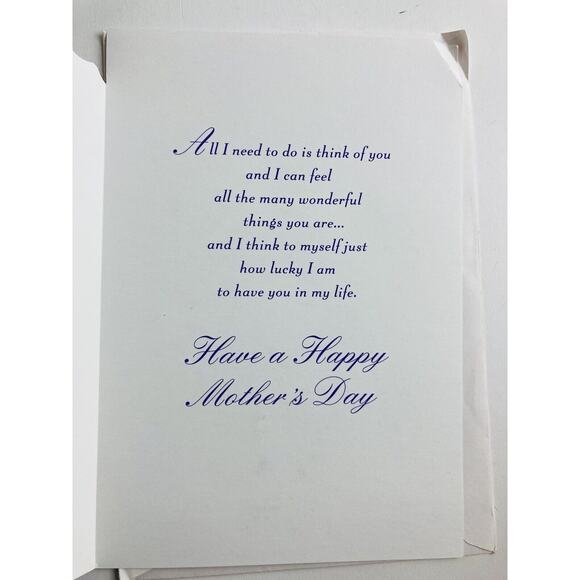 All I need to do is think of you
and I can feel
all the many wonderful
things you are...
and I think to myself just
how lucky I am
to have you in my life.
Have a Happy
Mother's Day